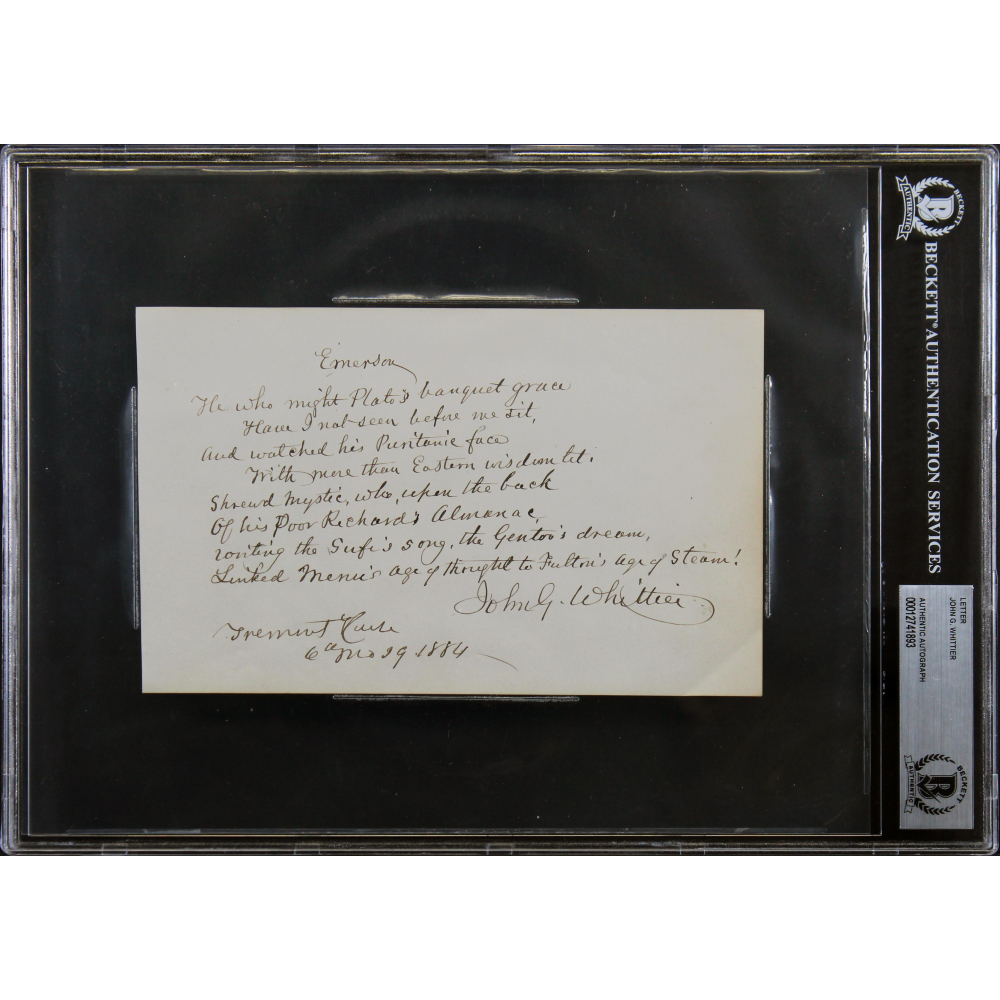 Emerson
He who might Plato's banquet grace
Have I not seen before me sit,
And watched his Puritanic face
With more than Eastern wisdom lit:
Shrewd mystic, who, upon the back
Of his Poor Richard's Almanac,
writing the Sufi's song, the Gentoo's dream,
Linked Menu's age of thought to Fulton's age of Steam!
John G. Whittier
Tremont
6th Mo 29 1884
BECKETT
AUTHENTIC
B
BECKETT® AUTHENTICATION SERVICES
LETTER
JOHN G. WHITTIER
AUTHENTIC AUTOGRAPH
00012741893
BECKETT
AUTHENTIC
B